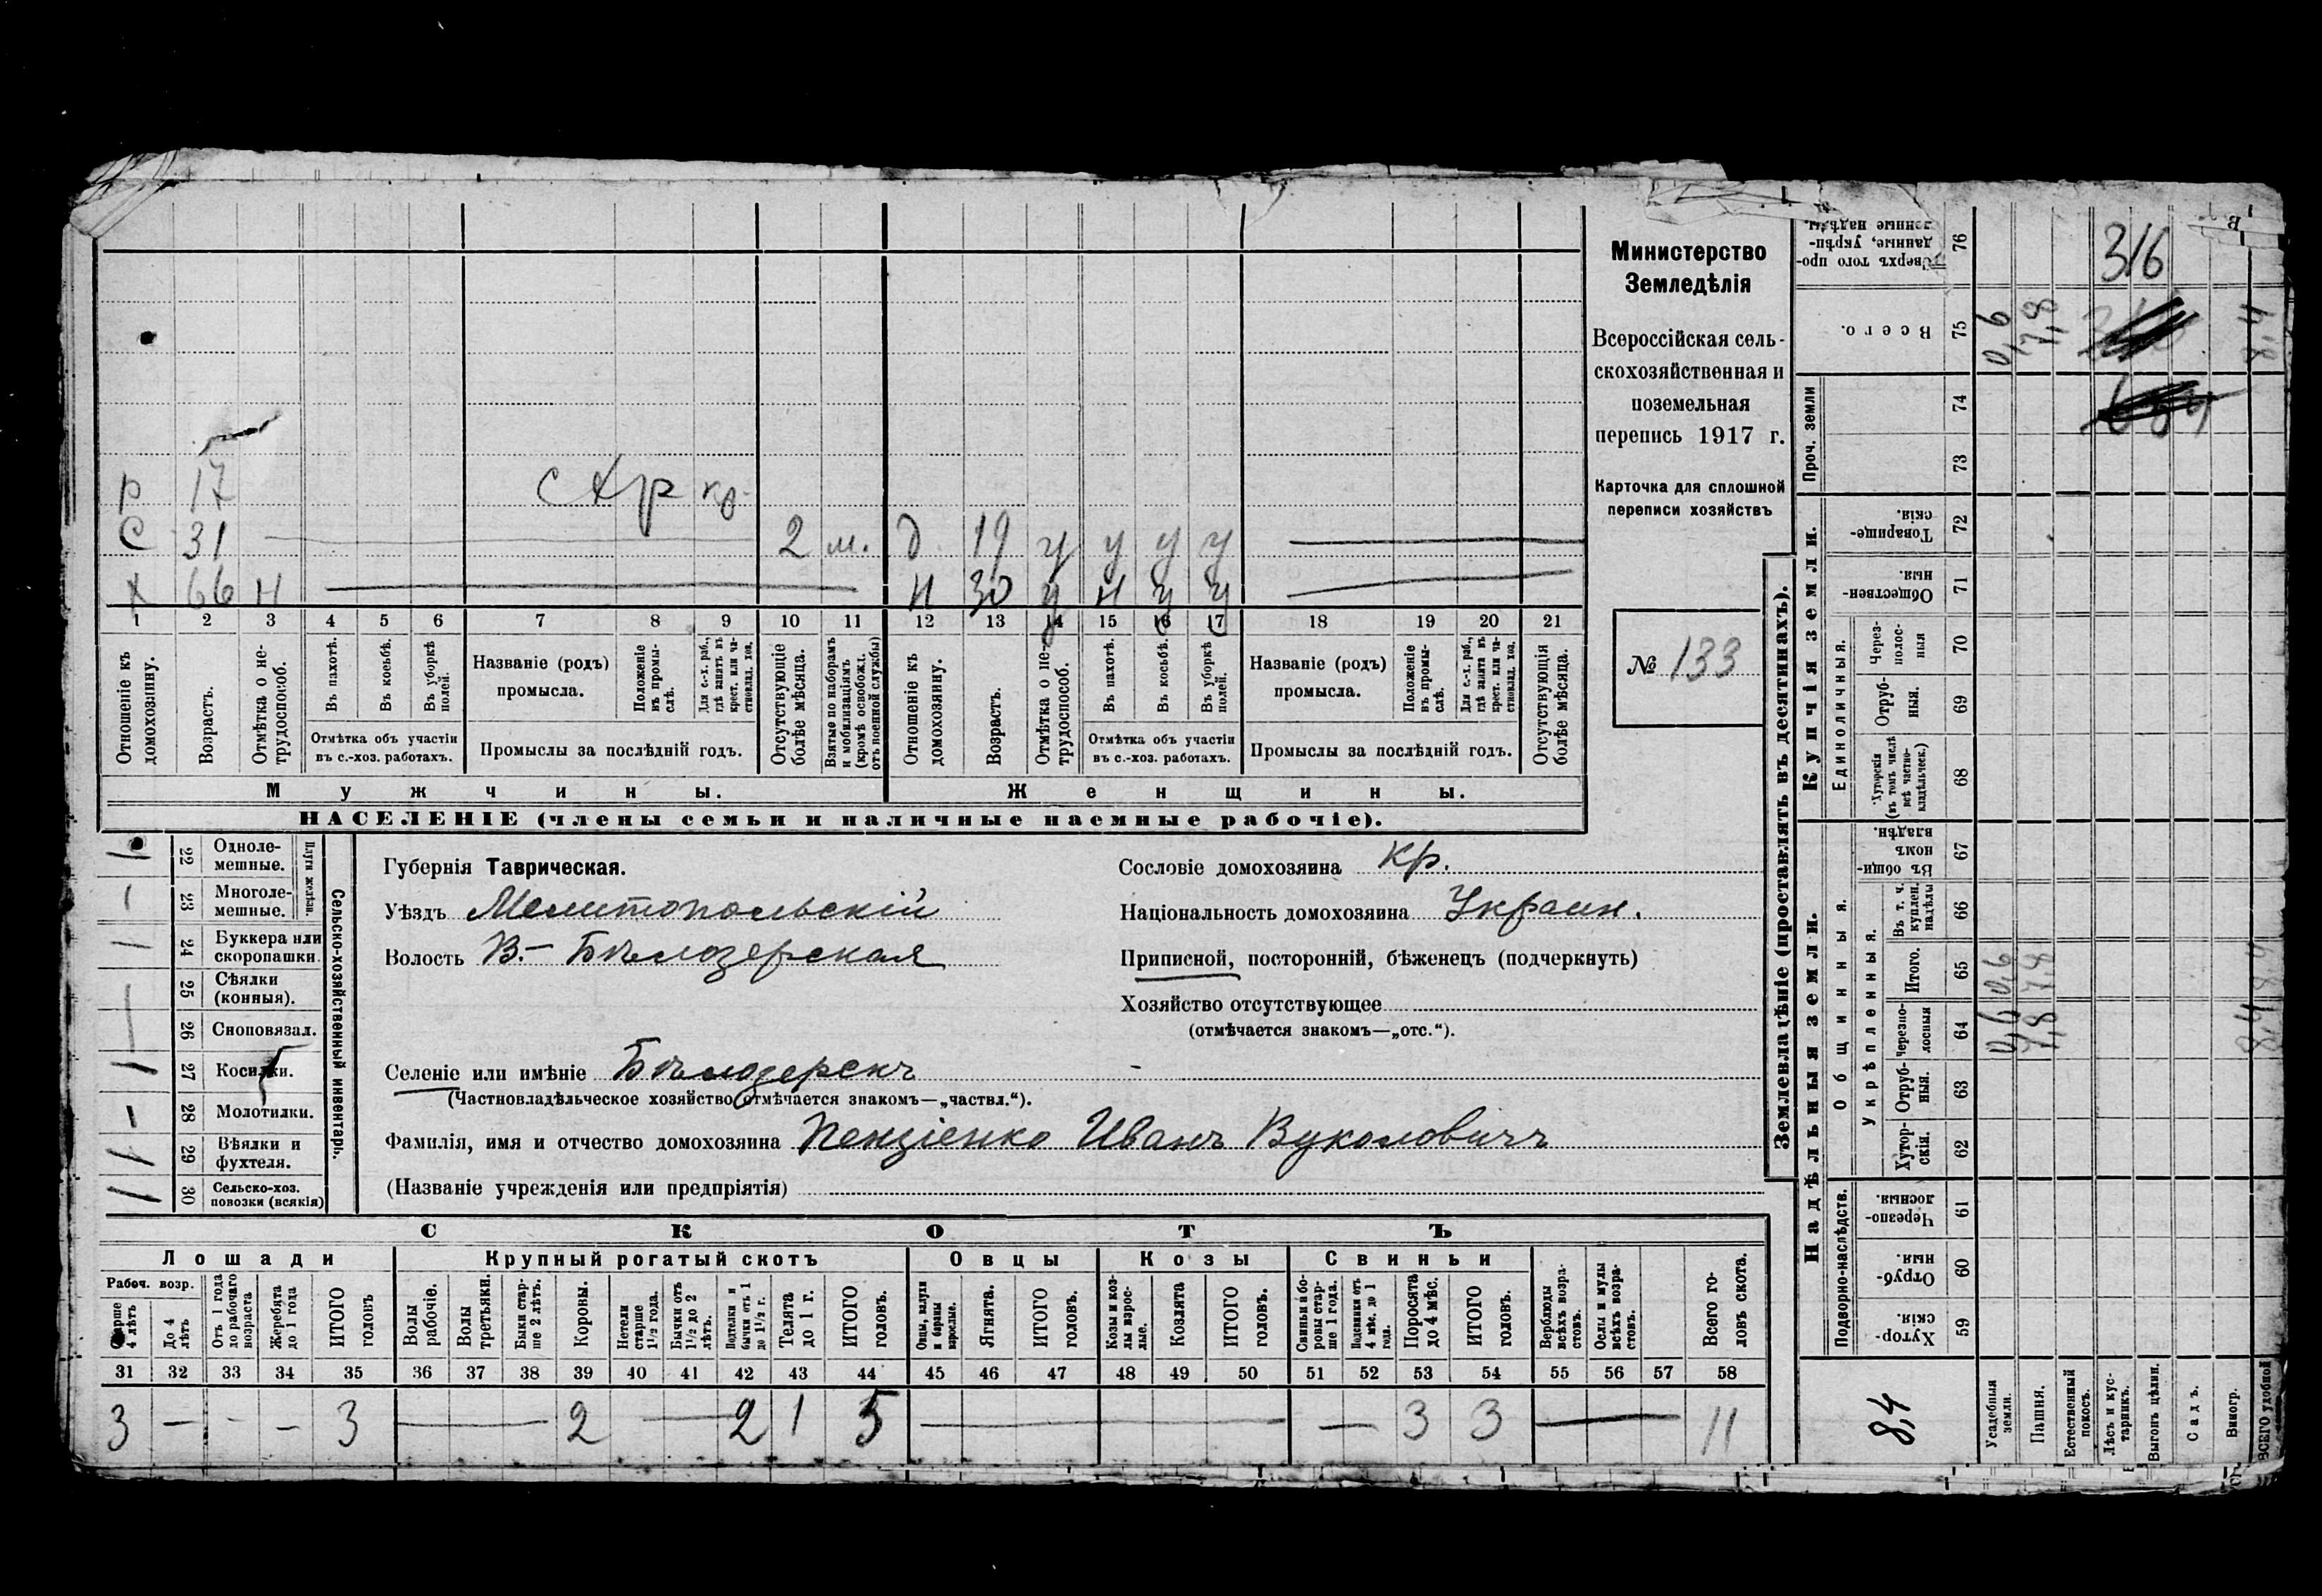 Министерство
Земледѣлія
Всероссійская сель-
скохозяйственная и
поземельная
перепись 1917 г.
Карточка для сплошной
переписи хозяйствъ
№ 133
р 17
С 31 2 м. д. 19 у у у у
х 66 н н 30 у н у у
1 2 3 4 5 6 7 8 9 10 11 12 13 14 15 16 17 18 19 20 21
Отношеніе къ домохозяину.
Возрастъ.
Отмѣтка о не-трудоспособ.
Въ пахотѣ.
Въ косьбѣ.
Въ уборкѣ полей.
Отмѣтка объ участіи
въ с.-хоз. работахъ.
Названіе (родъ)
промысла.
Положеніе въ промы-слѣ.
Для с.-х. раб., гдѣ занятъ въ крест. или ча-стновлад. хоз.
Промыслы за послѣдній годъ.
Отсутствующіе болѣе мѣсяца.
Взятые по наборамъ и мобилизаціямъ (кромѣ освобожд. отъ военной службы)
Отношеніе къ домохозяину.
Возрастъ.
Отмѣтка о не-трудоспособ.
Въ пахотѣ.
Въ косьбѣ.
Въ уборкѣ полей.
Отмѣтка объ участіи
въ с.-хоз. работахъ.
Названіе (родъ)
промысла.
Положеніе въ промы-слѣ.
Для с.-х. раб., гдѣ занята въ крест. или ча-стновлад. хоз.
Промыслы за послѣдній годъ.
Отсутствующія болѣе мѣсяца.
Мужчины. Женщины.
НАСЕЛЕНІЕ (члены семьи и наличные наемные рабочіе).
Сельско-хозяйственный инвентарь.
Плуги желѣзн.
1 22 Одноле-мешные.
– 23 Многоле-мешные.
1 24 Буккера или скоропашки.
25 Сѣялки (конныя).
26 Сноповязал.
1 27 Косилки.
– 28 Молотилки.
1 29 Вѣялки и фухтеля.
30 Сельско-хоз. повозки (всякія)
Губернія Таврическая.
Уѣздъ Мелитопольскій
Волость В.- Бѣлозерская
Селеніе или имѣніе Бѣлозерскъ
(Частновладѣльческое хозяйство отмѣчается знакомъ—„частвл.“).
Фамилія, имя и отчество домохозяина Пензіенко Иванъ Вуколовичъ
(Названіе учрежденія или предпріятія)
Сословіе домохозяина Кр.
Національность домохозяина Украин.
Приписной, посторонній, бѣженецъ (подчеркнуть)
Хозяйство отсутствующее
(отмѣчается знакомъ—„отс.“).
СКОТЪ
Лошади Крупный рогатый скотъ Овцы Козы Свиньи
Рабоч. возр.
Старше 4 лѣтъ
До 4 лѣтъ
Отъ 1 года до рабочаго возраста
Жеребята до 1 года
ИТОГО головъ
Волы рабочіе.
Волы третьяки.
Быки стар-ше 2 лѣтъ.
Коровы.
Нетели старше 1½ года.
Бычки отъ 1½ до 2 лѣтъ.
Подтелки и бычки отъ 1 до 1½ г.
Телята до 1 г.
ИТОГО головъ.
Овцы, валухи и бараны взрослые.
Ягнята.
ИТОГО головъ.
Козы и коз-лы взрос-лые.
Козлята
ИТОГО головъ.
Свиньи и бо-ровы стар-ше 1 года.
Подсвинки отъ 4 мѣс. до 1 года.
Поросята до 4 мѣс.
ИТОГО головъ.
Верблюды всѣхъ возра-стовъ.
Ослы и мулы всѣхъ возра-стовъ.
Всего го-ловъ скота.
31 32 33 34 35 36 37 38 39 40 41 42 43 44 45 46 47 48 49 50 51 52 53 54 55 56 57 58
3 – – – 3 – 2 – 2 1 5 – – 3 3 – 11
Землевладѣніе (проставлять въ десятинахъ).
Надѣльныя земли. Купчія земли. Проч. земли
Подворно-наслѣдств.
Общинныя.
Укрѣпленныя.
Единоличныя.
Хутор-скія. 59
Отруб-ныя. 60
Черезпо-лосныя. 61
Хутор-скія. 62
Отруб-ныя. 63
Черезпо-лосныя 64
Итого. 65
Въ т. ч. куплен. надѣлы 66
Въ общин-номъ владѣн. 67
Хуторскія (въ томъ числѣ всѣ частно-владѣльческ.) 68
Отруб-ныя. 69
Через-полос-ныя 70
Обществен-ныя. 71
Товарище-скія. 72
73
74
Всего. 75
Сверхъ того про-данные, укрѣп-ленные надѣлы. 76
Усадебныя земли. 0,6 0,6 0,6
Пашня. 7,8 7,8 7,8
Естественный покосъ.
Лѣсъ и кус-тарникъ.
Выгонъ цѣлин.
Садъ.
Виногр.
ВСЕГО удобной 8,4 8,4 8,4
8,4
316